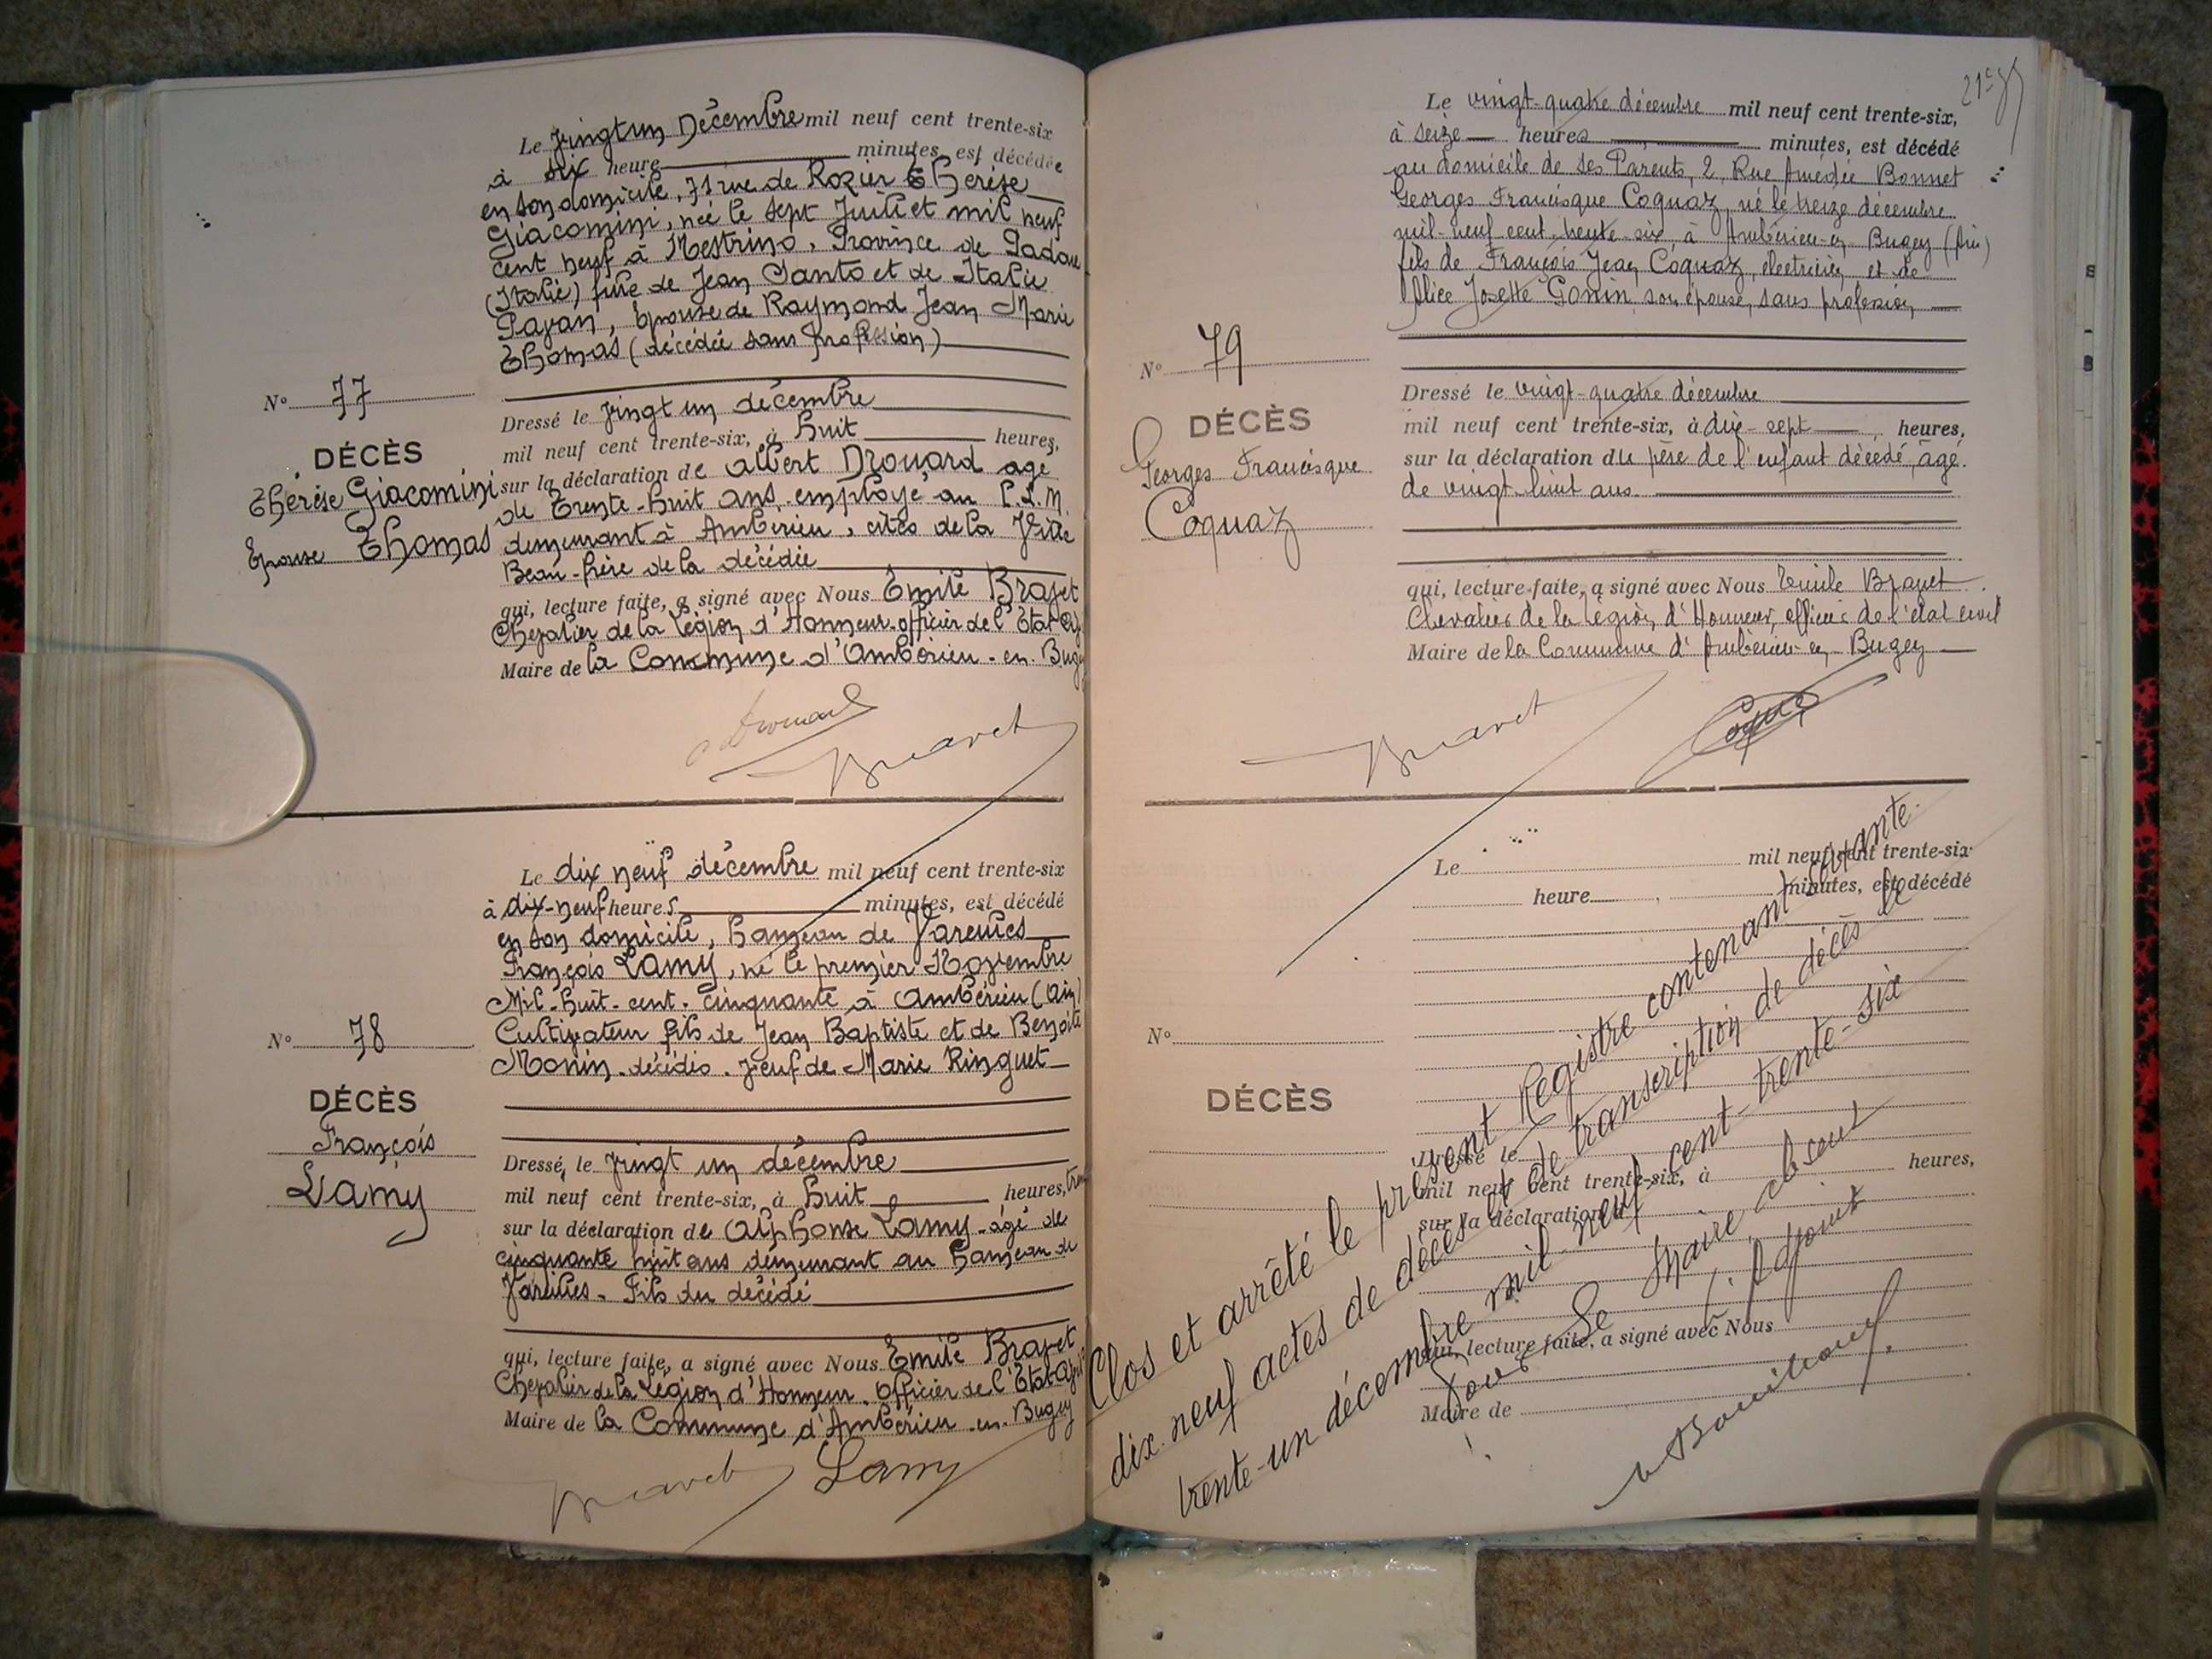 Le Vingt un Décembre mil neuf cent trente-six
à six heure minutes, est décédée
en son domicile, 71 rue de Rozier Thérèse
Giacomini, née le sept Juillet mil neuf
cent neuf à Mestrino, Province de Padoue
(Italie) fille de Jean Santo et de Italie
Pavan, Epouse de Raymond Jean Marie
Thomas (décédée sans profession)
N° 77
DÉCÈS
Thérèse Giacomini
Epouse Thomas
Dressé le Vingt un décembre
mil neuf cent trente-six, à huit heures,
sur la déclaration de Albert Drouard agé
de Trente-huit ans employé au P.L.M.
demeurant à Ambérieu, cités de la Ville
Beau-frère de la décédée
qui, lecture faite, a signé avec Nous Emile Bravet
Chevalier de la Légion d'Honneur officier de l'Etat
Maire de la Commune d'Ambérieu-en-Bugey
Drouard
Bravet
Le dix neuf décembre mil neuf cent trente-six
à dix-neuf heures minutes, est décédé
en son domicile, hameau de Vareilles
François Lamy, né le premier Novembre
Mil-huit-cent-cinquante à Ambérieu (Ain)
Cultivateur fils de Jean Baptiste et de Benoite
Monin. décédés. Veuf de Marie Ringuet
N° 78
DÉCÈS
François
Lamy
Dressé, le Vingt un décembre
mil neuf cent trente-six, à huit heures,
sur la déclaration de Alphonse Lamy-âgé de
cinquante huit ans demeurant au hameau de
Vareilles. Fils du décédé
qui, lecture faite, a signé avec Nous Emile Bravet
Chevalier de la Légion d'Honneur. Officier de l'Etat
Maire de la Commune d'Ambérieu-en-Bugey
Bravet Lamy
Le vingt-quatre décembre mil neuf cent trente-six,
à seize heures minutes, est décédé
au domicile de ses Parents, 2, Rue Amédée Bonnet
Georges Francisque Coquaz, né le treize décembre
mil-neuf cent-trente-six, à Ambérieu-en Bugey (Ain)
fils de François Jean Coquaz, électricien, et de
Alice Josette Gonin son épouse, sans profession,
N° 79
DÉCÈS
Georges Francisque
Coquaz
Dressé le vingt-quatre décembre
mil neuf cent trente-six, à dix-sept heures,
sur la déclaration du père de l'enfant décédé, âgé
de vingt-huit ans.
qui, lecture faite, a signé avec Nous Emile Bravet
Chevalier de la Légion d'Honneur, officier de l'état civil
Maire de la Commune d'Ambérieu-en Bugey
Bravet
Le mil neuf cent trente-six
heure minutes, est décédé
N°
DÉCÈS
Dressé le
mil neuf cent trente-six, à heures,
sur la déclaration d
qui, lecture faite, a signé avec Nous
Maire de
Clos et arrêté le présent Registre contenant soixante-
dix-neuf actes de décès et de transcription de décès le
trente-un décembre mil-neuf cent-trente-six
Pour Le Maire absent
L'Adjoint